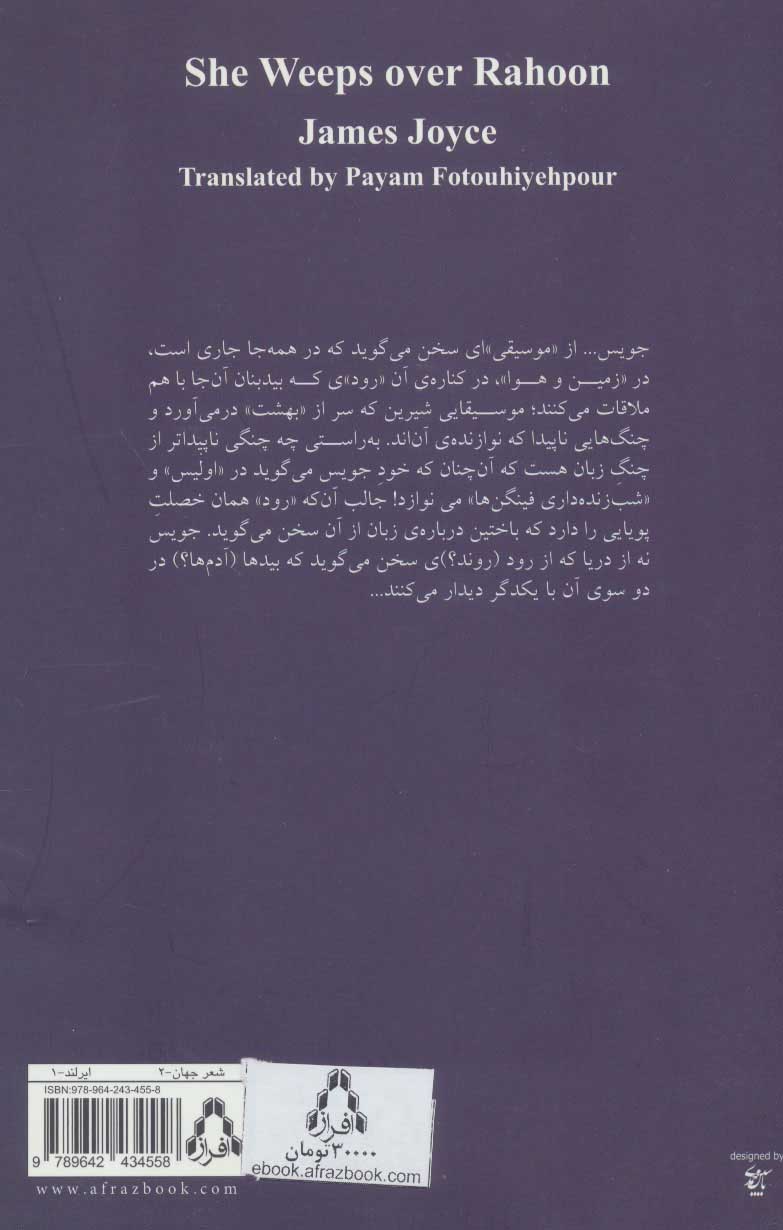 She Weeps over Rahoon
James Joyce
Translated by Payam Fotouhiyehpour
جویس... از «موسیقی»ای سخن می‌گوید که در همه‌جا جاری است،
در «زمیـن و هـوا»، در کناره‌ی آن «رود»ی کـه بیدبنان آن‌جا با هم
ملاقات می‌کنند؛ موسـیقایی شیرین که سر از «بهشت» درمی‌آورد و
چنگ‌هایی ناپیدا که نوازنده‌ی آن‌اند. به‌راسـتی چه چنگی ناپیداتر از
چنگِ زبان هست که آن‌چنان که خودِ جویس می‌گوید در «اولیس» و
«شب‌زنده‌داری فینگن‌ها» می نوازد! جالب آن‌که «رود» همان خصلتِ
پویایی را دارد که باختین درباره‌ی زبان از آن سخن می‌گوید. جویس
نه از دریا که از رود (روند؟)ی سخن می‌گوید که بیدها (آدم‌ها؟) در
دو سوی آن با یکدگر دیدار می‌کنند...
شعر جهان-۲ ایرلند-۱
ISBN:978-964-243-455-8
افراز
9 789642 434558
www.afrazbook.com
افراز
۳۰۰۰۰تومان
ebook.afrazbook.com
designed by